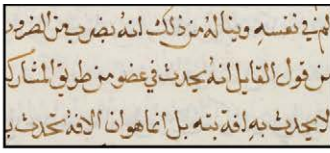 لم في نفسه ويناله من ذلك انه يضرب من الضرور
من قول القايل انه يحدث في عضو من طريق المشارك
لا يحدث به افة بتة بل انما هو ان الافة تحدث